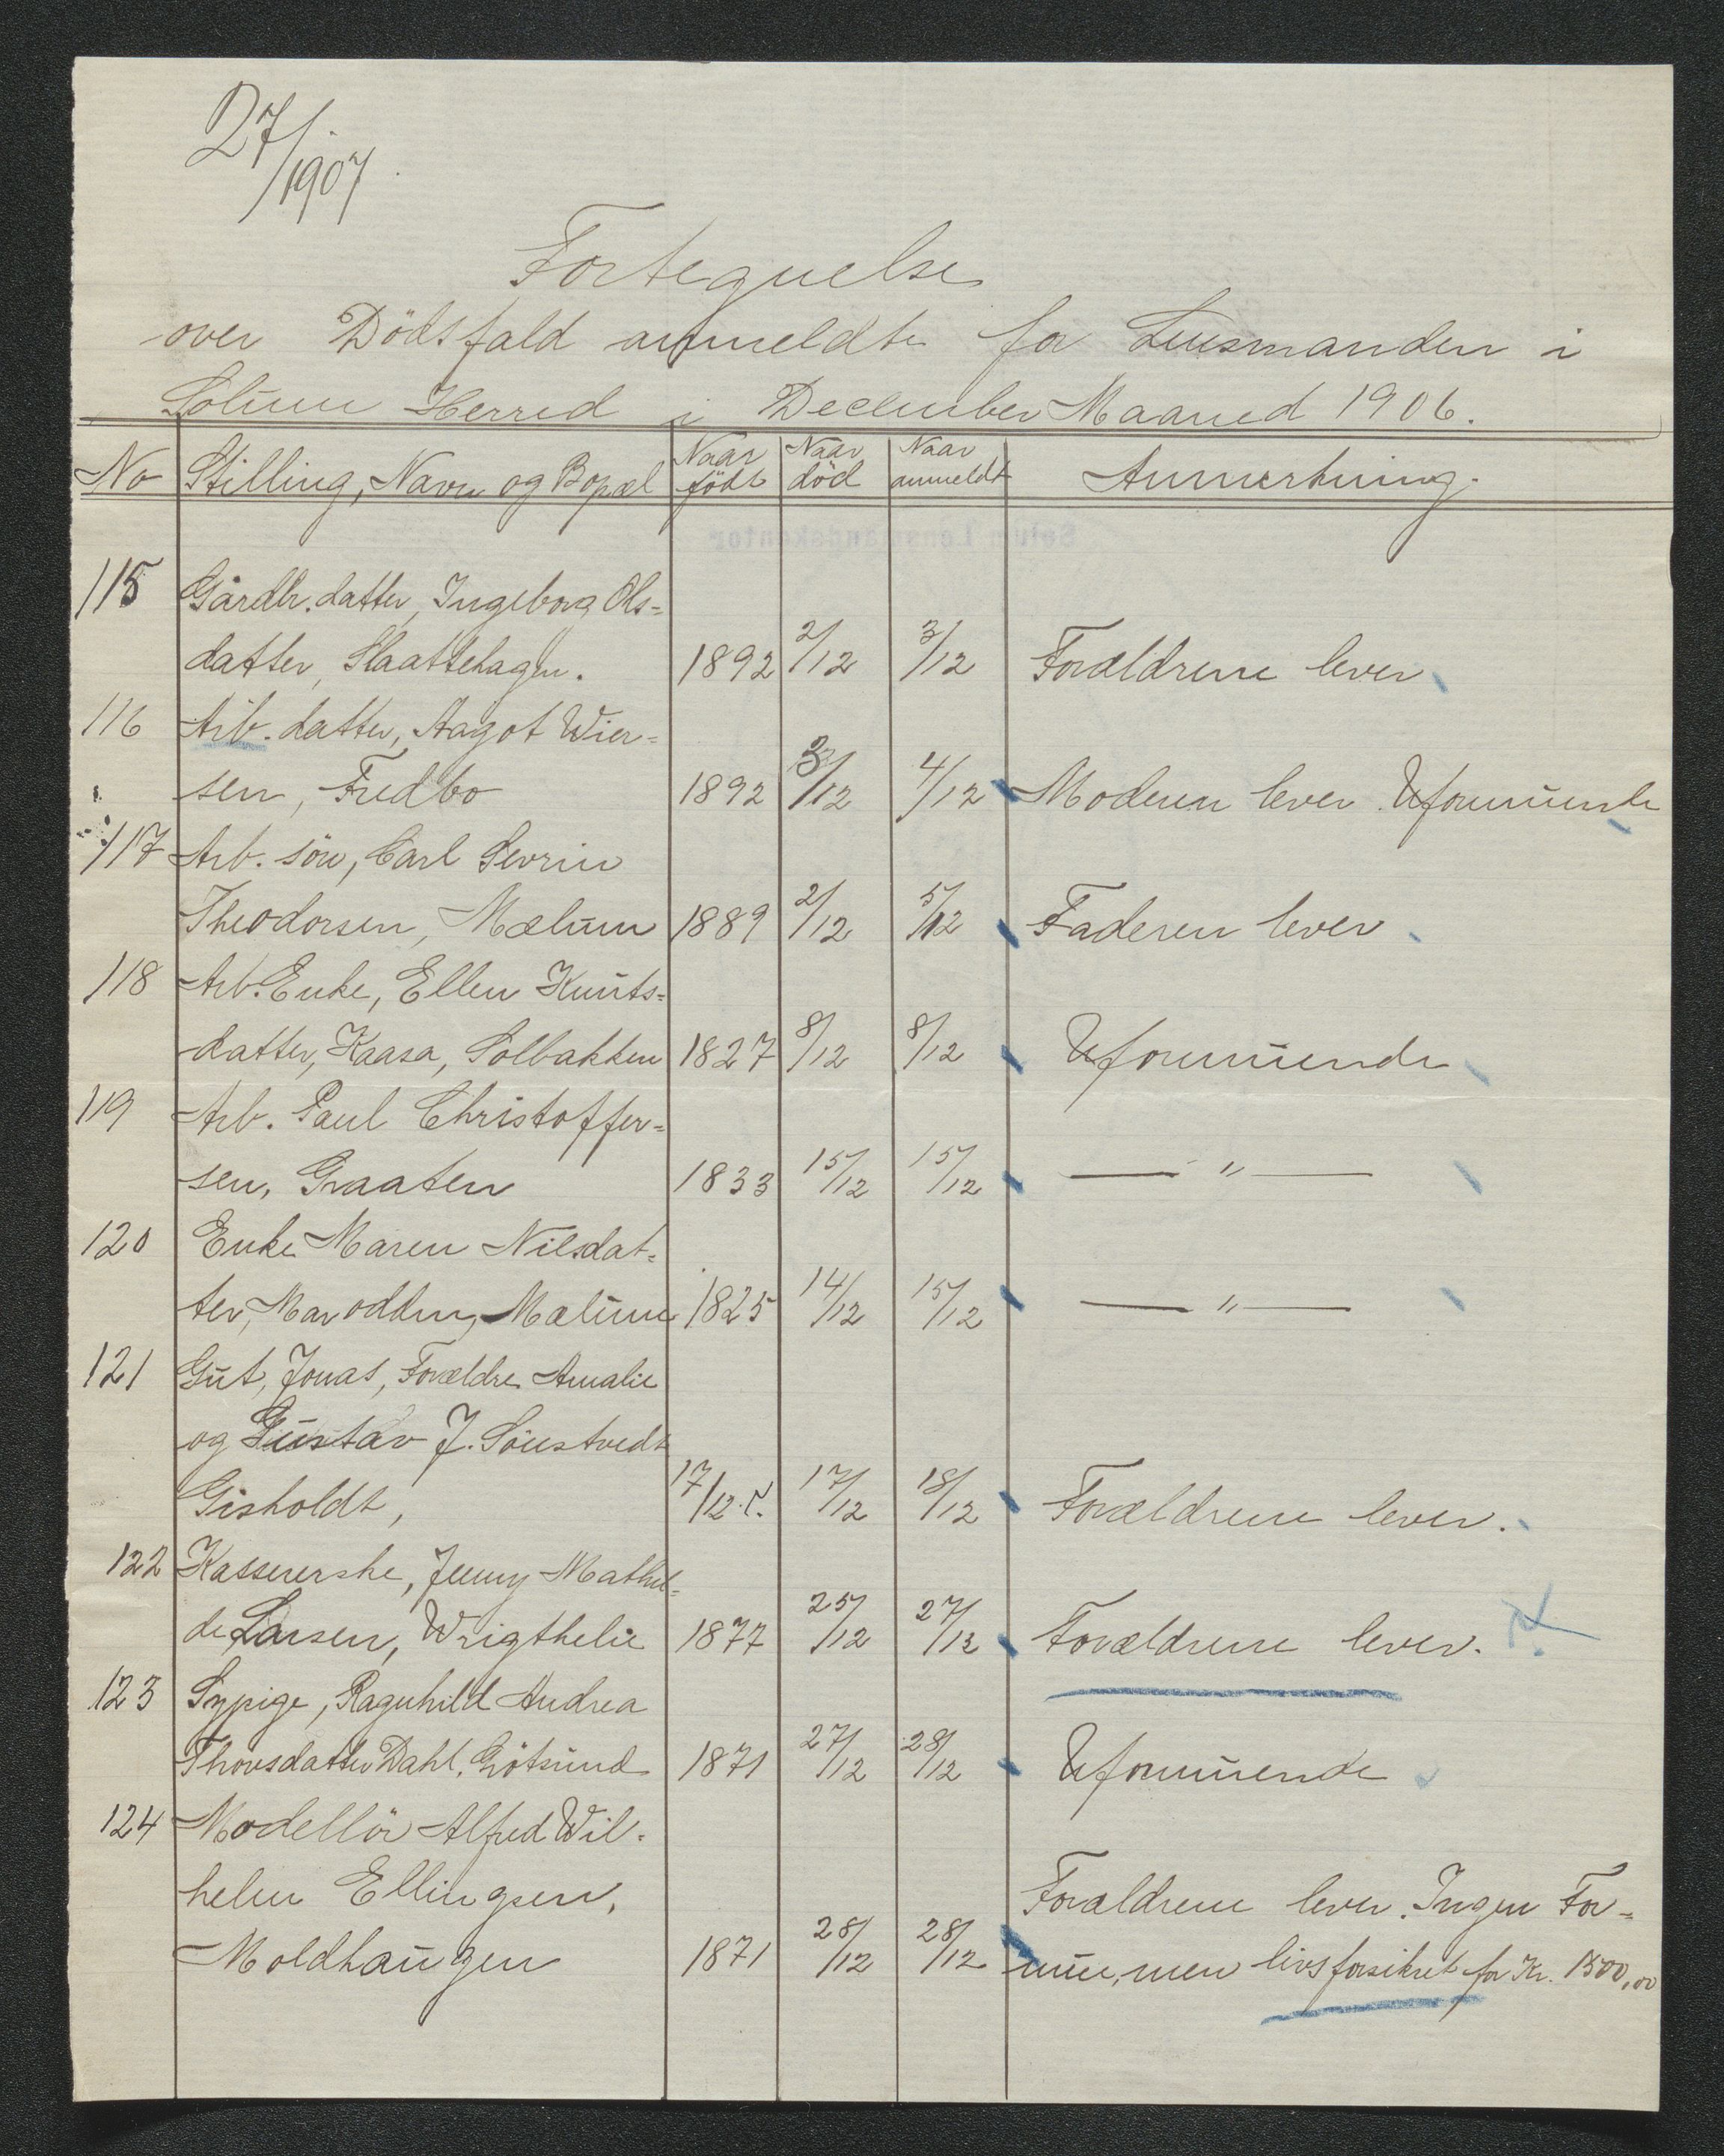 27/1907
Fortegnelse
over Dödsfald anmeldte for Lensmanden i
Solum Herred i December Maaned 1906.
No Stilling, Navn og Bopæl Naar födt Naar död Naar anmeldt Anmerkning.
115 Gårdbr. datter, Ingeborg Ols=
datter, Slaattehagen. 1892 2/12 3/12 Forældrene lever
116 Arb. datter, Aagot Wier=
sen, Fredbo 1892 3/12 4/12 Moderen lever. Uformuende
117 Arb. sön, Carl Sevrin
Theodorsen, Mælum 1889 2/12 5/12 Faderen lever
118 Arb. Enke, Ellen Knuts=
datter, Kaasa, Solbakken 1827 8/12 8/12 Uformuende
119 Arb. Paul Christoffer=
sen, Graaten 1833 15/12 15/12 — " —
120 Enke Maren Nilsdat=
ter, Marodden, Mælum 1825 14/12 15/12 — " —
121 Gut, Jonas, Forældre Amalie
og Gustav J. Sönstvedt
Gisholdt, 17/12 17/12 18/12 Forældrene lever.
122 Kassererske, Jenny Mathil=
de Larsen, Wrigthelie 1877 25/12 27/12 Forældrene lever.
123 Sypige, Ragnhild Andrea
Thovsdatter Dahl, 1871 27/12 28/12 Uformuende
124 Modellör Alfred Wil=
helm Ellingsen, Forældrene lever. Ingen For=
Moldhaugen 1871 28/12 28/12 mue, men livsforsikret for Kr. 1500,00
Solum Lensmandskontor